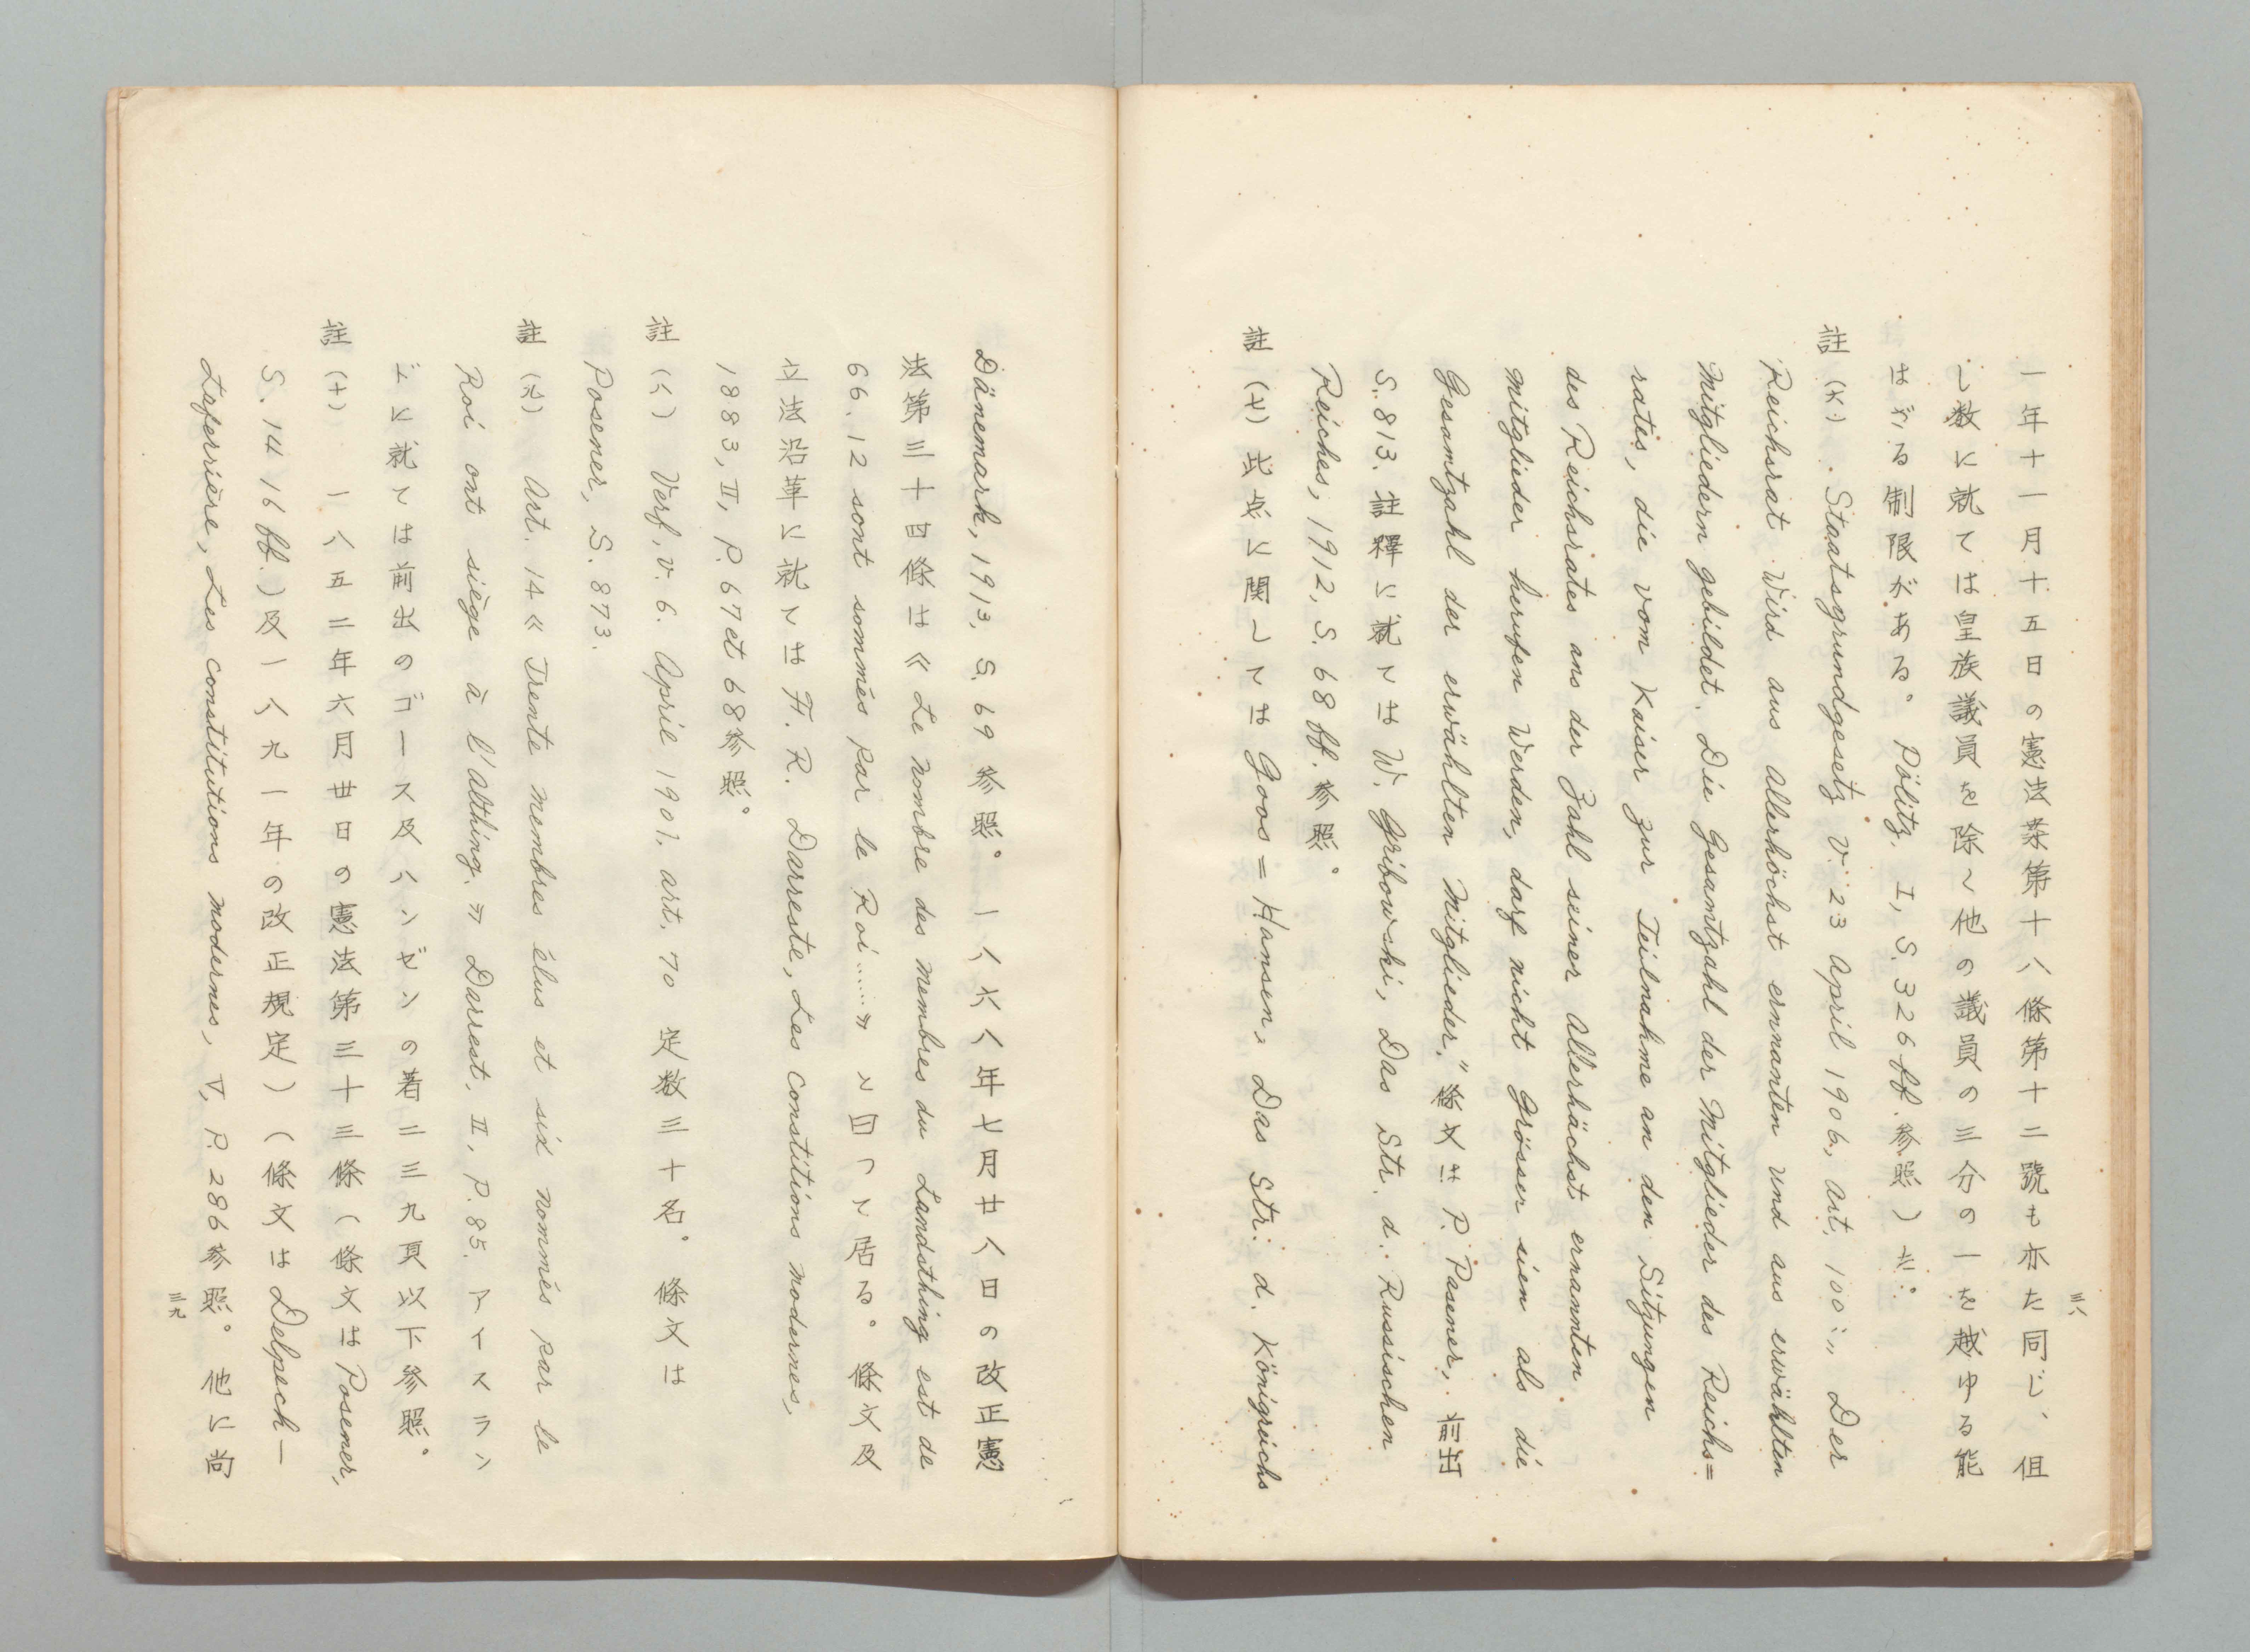 三八
一年十一月十五日の憲法案第十八條第十二號も亦た同じ、但
し数に就ては皇族議員を除く他の議員の三分の一を越ゆる能
はざる制限がある。Pölitz. I, S. 326 ff. 参照）た:
註（六）. Staatsgrundgesetz v. 23 April 1906, art. 100:„ Der
Reichsrat Wird aus Allerhöchst ernnanten und aus erwählten
Mitgliedern gebildet. Die Gesamtzahl der Mitglieder des Reichs=
rates, die vom Kaiser zur Teilnahme an den Sitzungen
des Reichsrates ans der Zahl seiner Allerhächst ernannten
Mitglieder herufen Werden, darf nicht Grösser sien als die
Gesamtzahl der erwählten Mitglieder." 條文は P. Pasener, 前出
S. 813. 註釋に就ては W. Gribowski, Das Str. d. Russischen
Reiches, 1912, S. 68 ff. 参照。
註（七）此点に関しては Goos=Hansen, Das Str. d. Königreichs
Dänemark, 1913, S. 69 参照。一八六八年七月廿八日の改正憲
法第三十四條は《 Le Nombre des Membres du Landsthing est de
66. 12 sont sommés par le Roi……》と曰って居る。條文及
立法沿革に就ては F. R. Darreste, Les Constitions Modernes,
1883, II, P. 67 et 68 参照。
註（八）Verf. v. 6. April 1901, art. 70 定数三十名。條文は
Posener, S. 873.
註（九）Art. 14 《 Trente Membres élus et six nommés par le
Roi ont siège à l'Althing. 》 Darrest. II, P. 85. アイスラン
ドに就ては前出のゴース及ハンゼンの著二三九頁以下参照。
註（十）一八五二年六月廿日の憲法第三十三條（條文は Posener,
S. 1416 ff.）及一八九一年の改正規定）（條文は Delpech—
Laferrière, Les Constitutions Modernes, V, P. 286 参照。他に尚
三九